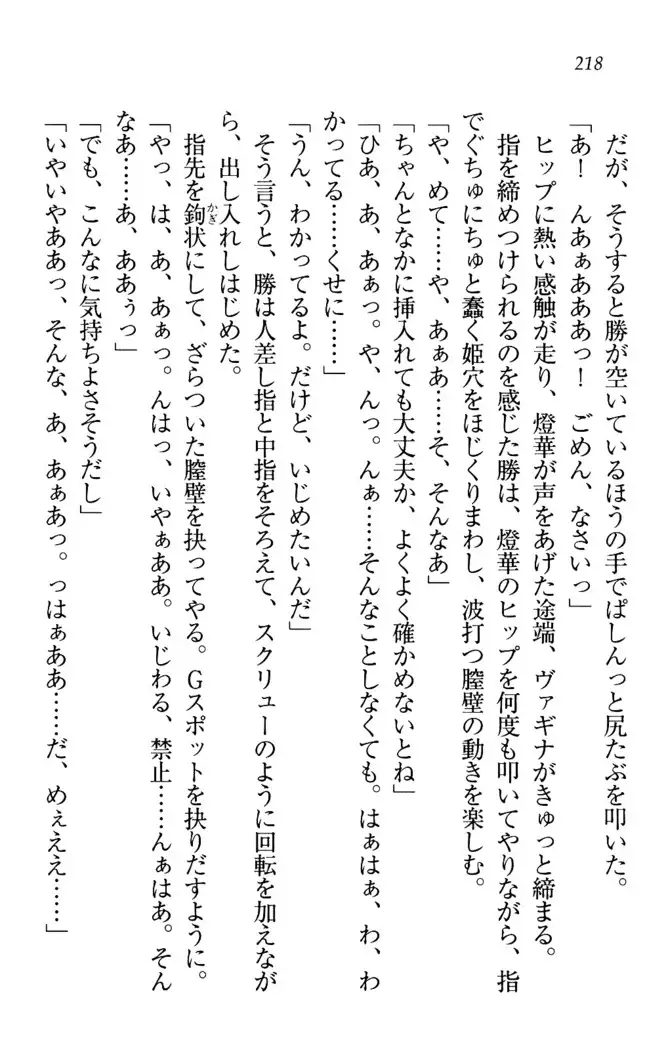 218
だが、そうすると勝が空いているほうの手でぱしんっと尻たぶを叩いた。
「あ！　んあぁあああっ！　ごめん、なさいっ」
ヒップに熱い感触が走り、燈華が声をあげた途端、ヴァギナがきゅっと締まる。
指を締めつけられるのを感じた勝は、燈華のヒップを何度も叩いてやりながら、指
でぐちゅにちゅと蠢く姫穴をほじくりまわし、波打つ膣壁の動きを楽しむ。
「や、めて……や、あぁあ……そ、そんなあ」
「ちゃんとなかに挿入れても大丈夫か、よくよく確かめないとね」
「ひあ、あ、あぁっ。や、んっ。んぁ……そんなことしなくても。はぁはぁ、わ、わ
かってる……くせに……」
「うん、わかってるよ。だけど、いじめたいんだ」
そう言うと、勝は人差し指と中指をそろえて、スクリューのように回転を加えなが
ら、出し入れしはじめた。
指先を鉤かぎ状にして、ざらついた膣壁を抉ってやる。Gスポットを抉りだすように。
「やっ、は、あ、あぁっ。んはっ、いやぁああ。いじわる、禁止……んぁはあ。そん
なあ……あ、ああぅっ」
「でも、こんなに気持ちよさそうだし」
「いやいやああっ、そんな、あ、あぁあっ。っはぁああ……だ、めぇええ……」